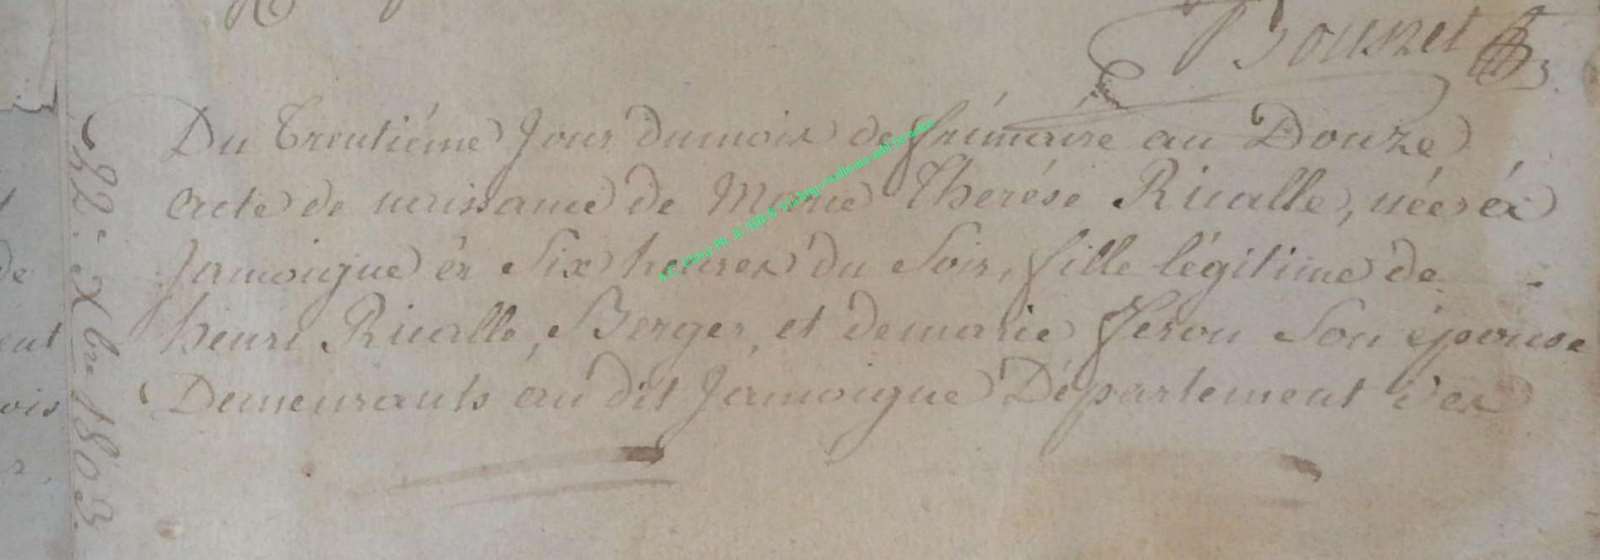 Bousret
Du Trentiéme Jour dumois de frimaire an Douze
acte de naissance de Marie Therése Rivalle, née à
Jamoigue à Six heures du Soir, fille légitime de
henri Rivalle, Berger, et demarie feron Son épouse
Demeurants au dit Jamoigue Département des
22. Xbre 1803
de
ois